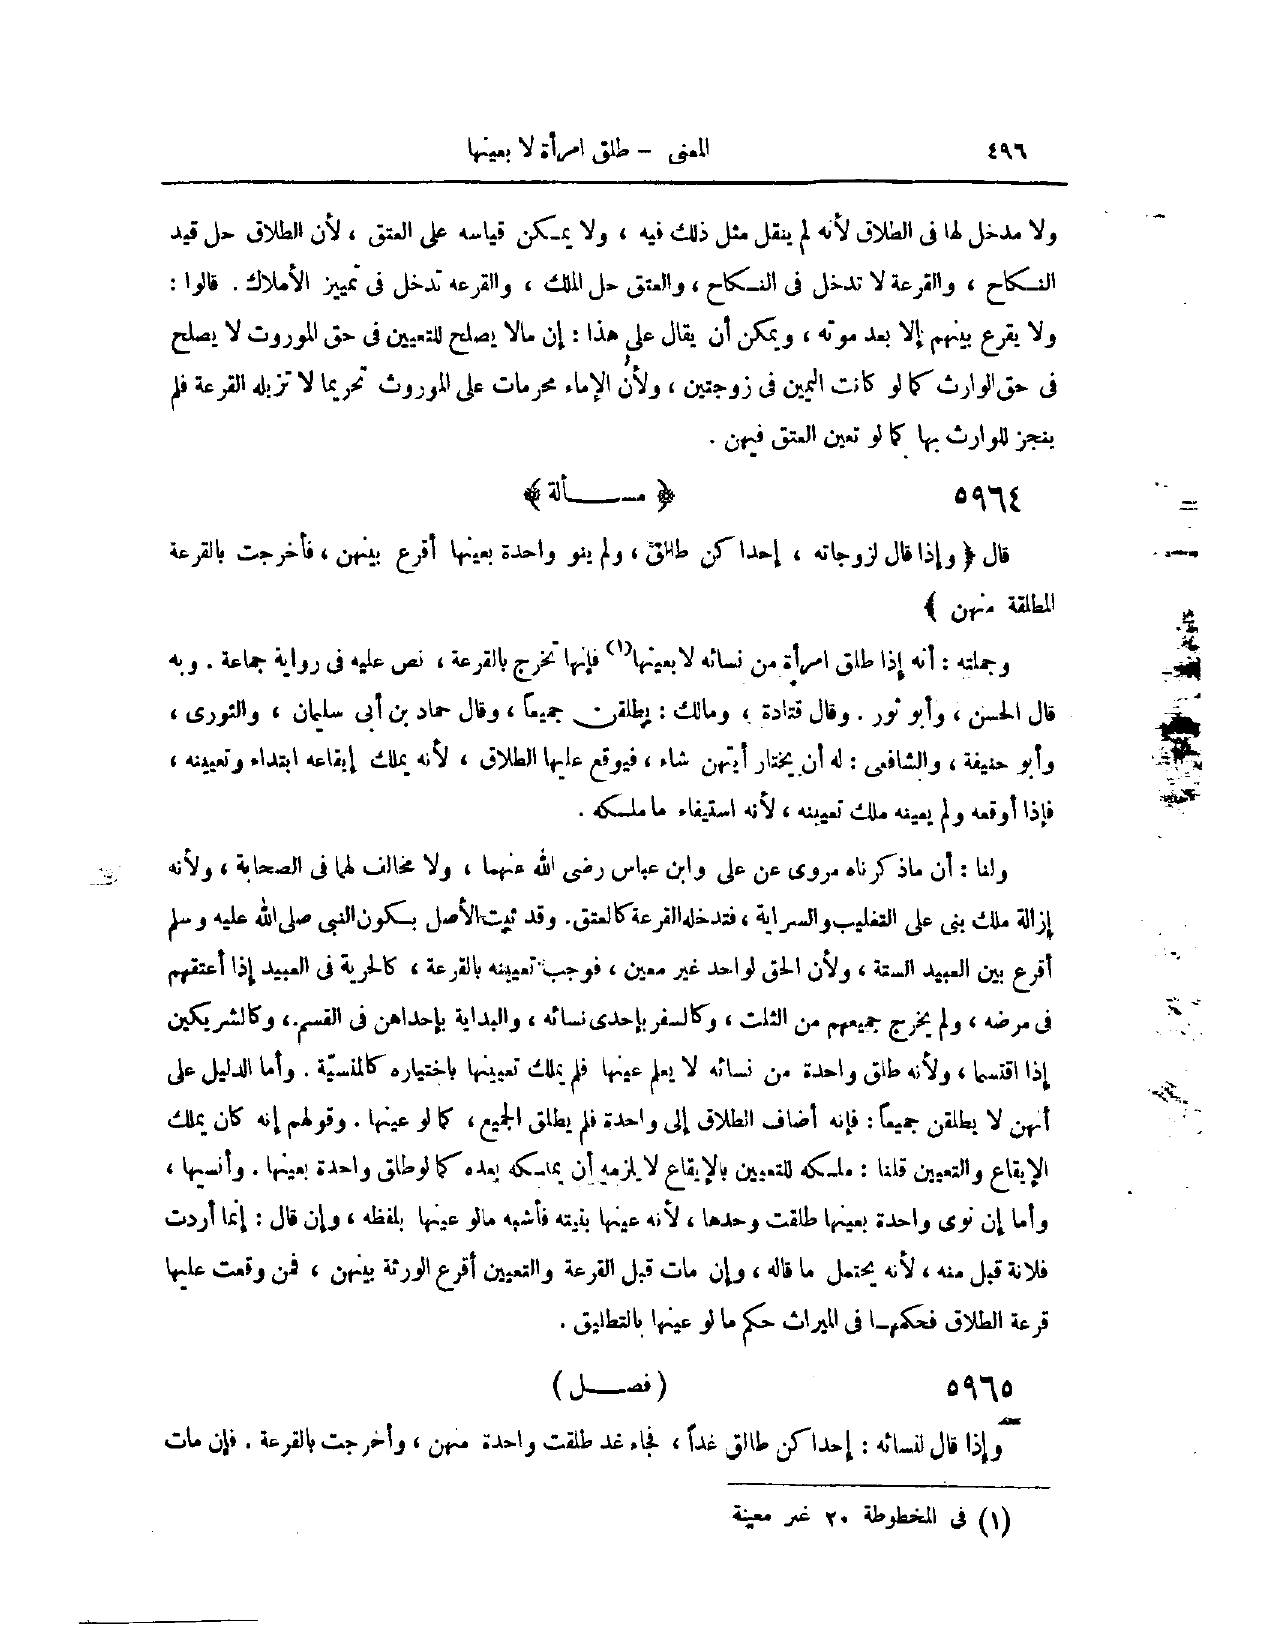 ٤٩٦ المغنى – طلق امرأة لا بعينها
ولا مدخل لها فى الطلاق لأنه لم ينقل مثل ذلك فيه ، ولا يمكن قياسه على العتق ، لأن الطلاق حل قيد
النكاح ، والقرعة لا تدخل فى النكاح ، والعتق حل الملك ، والقرعه تدخل فى تمييز الأملاك . قالوا :
ولا يقرع بينهم إلا بعد موته ، ويمكن أن يقال على هذا : إن مالا يصلح للتعيين فى حق الموروث لا يصلح
فى حق الوارث كما لو كانت اليمين فى زوجتين ، ولأن الإماء محرمات على الموروث تحريما لا تزيله القرعة فلم
ينجز للوارث بها كما لو تعين العتق فيهن .
٥٩٦٤ ﴿ مسألة ﴾
قال ﴿ وإذا قال لزوجاته ، إحداكن طالق ، ولم ينو واحدة بعينها أقرع بينهن ، فأخرجت بالقرعة
المطلقة منهن ﴾
وجملته : أنه إذا طلق امرأة من نسائه لا بعينها(١) فإنها تخرج بالقرعة ، نص عليه فى رواية جماعة . وبه
قال الحسن ، وأبو ثور . وقال قتادة ، ومالك : يطلقن جميعاً ، وقال حماد بن أبى سليمان ، والثورى ،
وأبو حنيفة ، والشافعى : له أن يختار أيتهن شاء ، فيوقع عليها الطلاق ، لأنه يملك إيقاعه ابتداء وتعيينه ،
فإذا أوقعه ولم يعينه ملك تعيينه ، لأنه استيفاء ما ملكه .
ولنا : أن ماذكرناه مروى عن على وابن عباس رضى الله عنهما ، ولا مخالف لهما فى الصحابة ، ولأنه
إزالة ملك بنى على التغليب والسراية ، فتدخله القرعة كالعتق. وقد ثبت الأصل بكون النبى صلى الله عليه وسلم
أقرع بين العبيد الستة ، ولأن الحق لواحد غير معين ، فوجب تعيينه بالقرعة ، كالحرية فى العبيد إذا أعتقهم
فى مرضه ، ولم يخرج جميعهم من الثلث ، وكالسفر بإحدى نسائه ، والبداية بإحداهن فى القسم ، وكالشريكين
إذا اقتسما ، ولأنه طلق واحدة من نسائه لا يعلم عينها فلم يملك تعيينها باختياره كالمنسيّة . وأما الدليل على
أنهن لا يطلقن جميعاً : فإنه أضاف الطلاق إلى واحدة فلم يطلق الجميع ، كما لو عينها . وقولهم إنه كان يملك
الإيقاع والتعيين قلنا : ملكه للتعيين بالإيقاع لا يلزمه أن يملكه بعده كما لو طلق واحدة بعينها . وأنسيها ،
وأما إن نوى واحدة بعينها طلقت وحدها ، لأنه عينها بنيته فأشبه مالو عينها بلفظه ، وإن قال : إنما أردت
فلانة قبل منه ، لأنه يحتمل ما قاله ، وإن مات قبل القرعة والتعيين أقرع الورثة بينهن ، فمن وقعت عليها
قرعة الطلاق فحكمها فى الميراث حكم ما لو عينها بالتطليق .
٥٩٦٥ ( فصل )
وإذا قال لنسائه : إحداكن طالق غداً ، فجاء غد طلقت واحدة منهن ، وأخرجت بالقرعة . فإن مات
(١) فى المخطوطة ٢٠ غير معينة